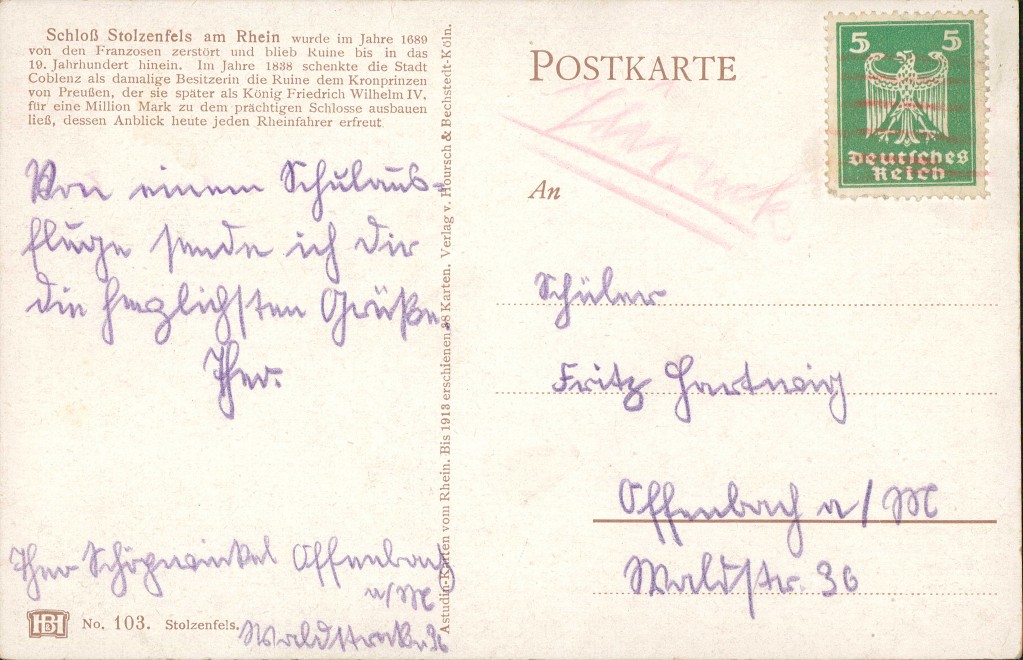 Schloß Stolzenfels am Rhein wurde im Jahre 1689
von den Franzosen zerstört und blieb Ruine bis in das
19. Jahrhundert hinein. Im Jahre 1838 schenkte die Stadt
Coblenz als damalige Besitzerin die Ruine dem Kronprinzen
von Preußen, der sie später als König Friedrich Wilhelm IV.
für eine Million Mark zu dem prächtigen Schlosse ausbauen
ließ, dessen Anblick heute jeden Rheinfahrer erfreut
Von einem Schulaus-
fluge sende ich dir
die herzlichsten Grüße.
Theo.
Theo Offenbach
a/M
Waldstraße 36
No. 103. Stolzenfels.
Astudin-Karten vom Rhein. Bis 1913 erschienen 38 Karten. Verlag v. Hoursch & Bechstedt-Köln.
POSTKARTE
5 5
Deutsches
Reich
An
Schüler
Fritz Hartwig
Offenbach a/M
Waldstr. 36